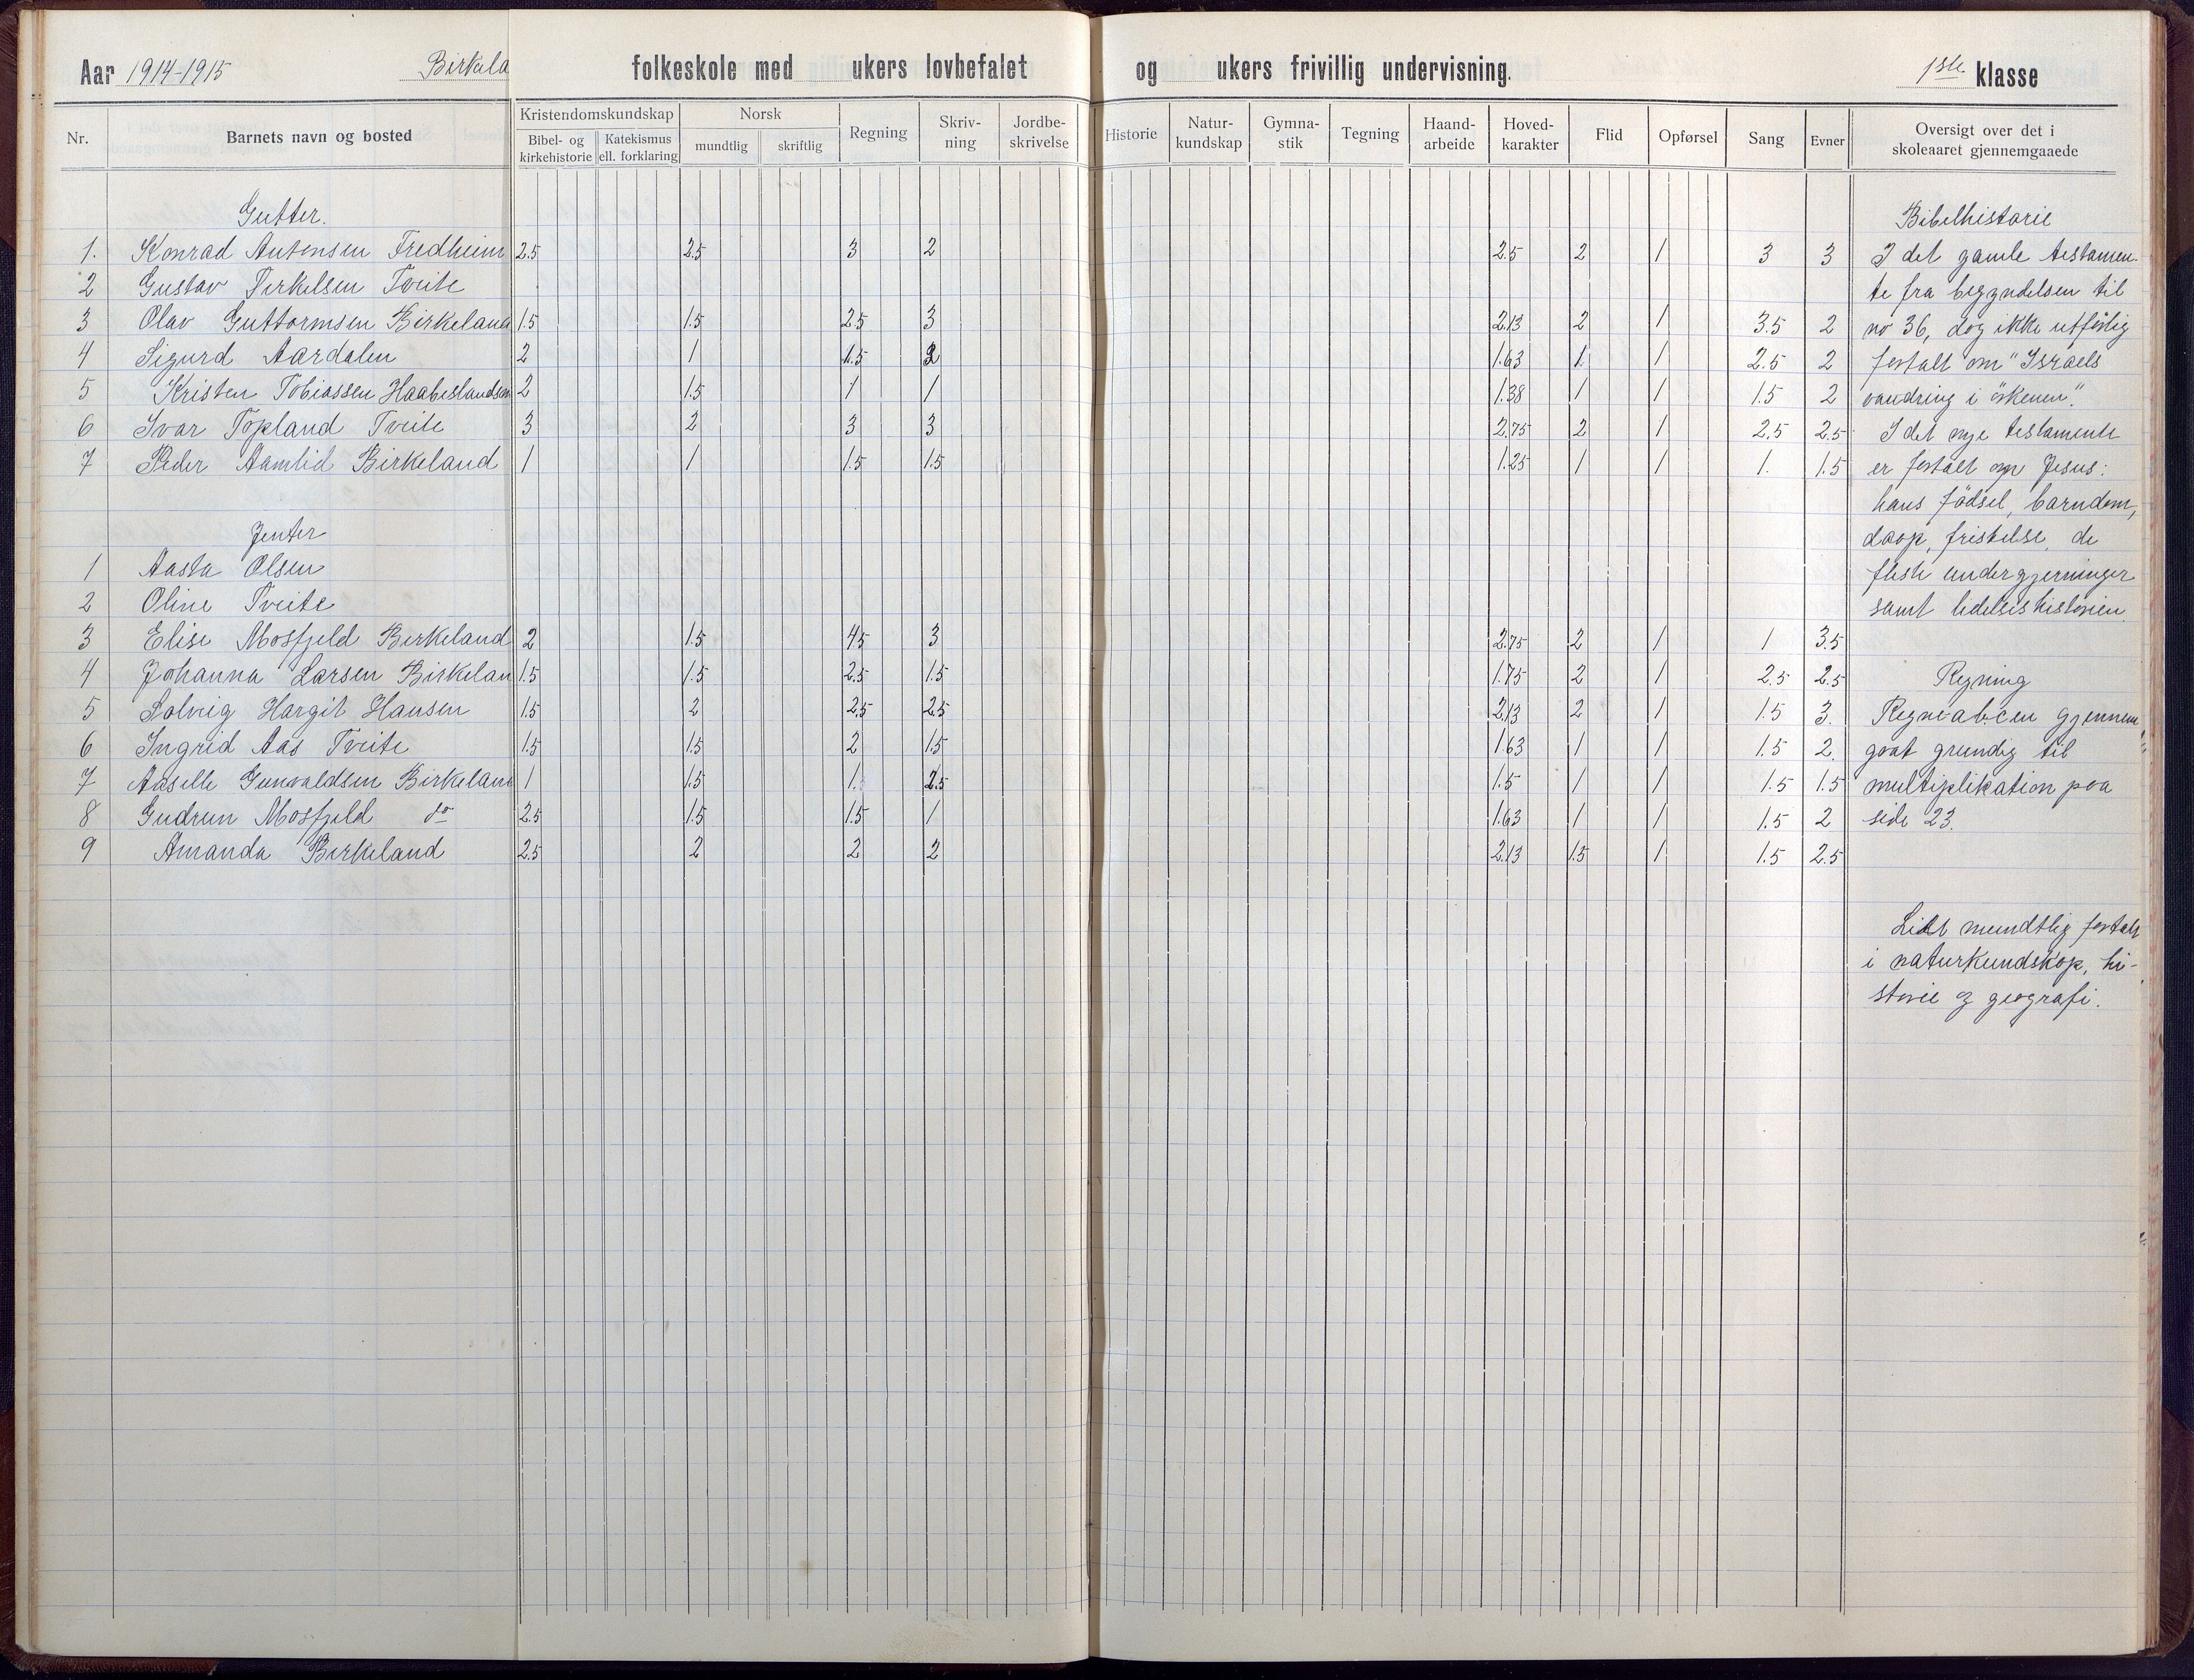 Aar 1914-1915 Birkela folkeskole med ukers lovbefalet og ukers frivillig undervisning. 1ste klasse
Nr. Barnets navn og bosted Kristendomskundskap Bibel- og kirkehistorie Katekismus ell. forklaring Norsk mundtlig skriftlig Regning Skriv-ning Jordbe-skrivelse Historie Natur-kundskap Gymna-stik Tegning Haand-arbeide Hoved-karakter Flid Opførsel Sang Evner Oversigt over det i skoleaaret gjennemgaaede
Gutter. Bibelhistorie
1. Konrad Antonsen Fredheim 2.5 2.5 3 2 2.5 2 1 3 3 I det gamle testamen-
2 Gustav Terkelsen Tveite te fra begyndelsen til
3 Olav Guttormsen Birkeland 1.5 1.5 2.5 3 2.13 2 1 3.5 2 no 36, dog ikke utførlig
4 Sigurd Aardalen 2 1 1.5 2 1.63 1. 1 2.5 2 fortalt om "Israels
5 Kristen Tobiassen Haabeslandsm 2 1.5 1 1 1.38 1 1 1.5 2 vandring i örkenen".
6 Ivar Topland Tveite 3 2 3 3 2.75 2 1 2.5 2.5 I det nye testamente
7 Peder Aamlid Birkeland 1 1 1.5 1.5 1.25 1 1 1. 1.5 er fortalt om Jesus:
hans födsel, barndom,
Jenter daap, fristelse, de
1 Aasta Olsen fleste undergjerninger
2 Oline Tveite samt lidelseshistorien.
3 Elise Mosfjeld Birkeland 2 1.5 4.5 3 2.75 2 1 1 3.5
4 Johanna Larsen Birkelan 1.5 1.5 2.5 1.5 1.75 2 1 2.5 2.5 Regning
5 Solveig Hargit Hansen 1.5 2 2.5 2.5 2.13 2 1 1.5 3. Regneabcen gjennem
6 Ingrid Aas Tveite 1.5 1.5 2 1.5 1.63 1 1 1.5 2. gaat grundig til
7 Aaselle Gunvaldsen Birkelan 1 1.5 1. 2.5 1.5 1 1 1.5 1.5 multiplikation paa
8 Gudrun Mosfjeld do 2.5 1.5 1.5 1 1.63 1 1 1.5 2 side 23.
9 Amanda Birkeland 2.5 2 2 2 2.13 1.5 1 1.5 2.5
Lidt mundtlig fortalt
i naturkundskap, hi-
storie og geografi.